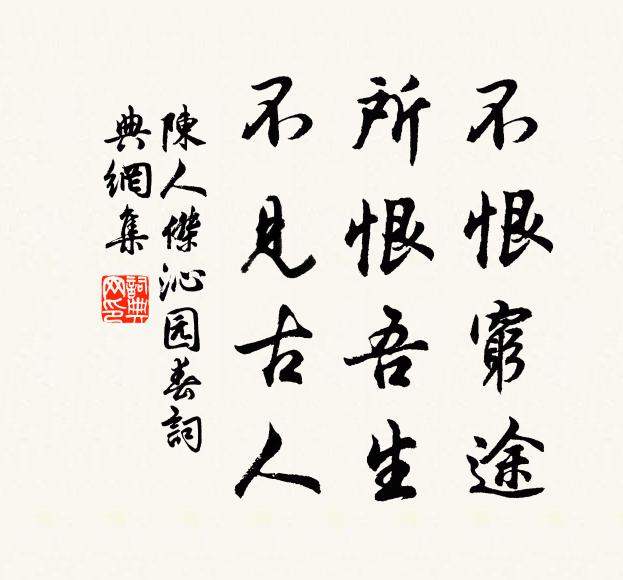 不恨窮途
所恨吾生
不見古人
陳人傑沁园春詞
典網集
詞典
网印